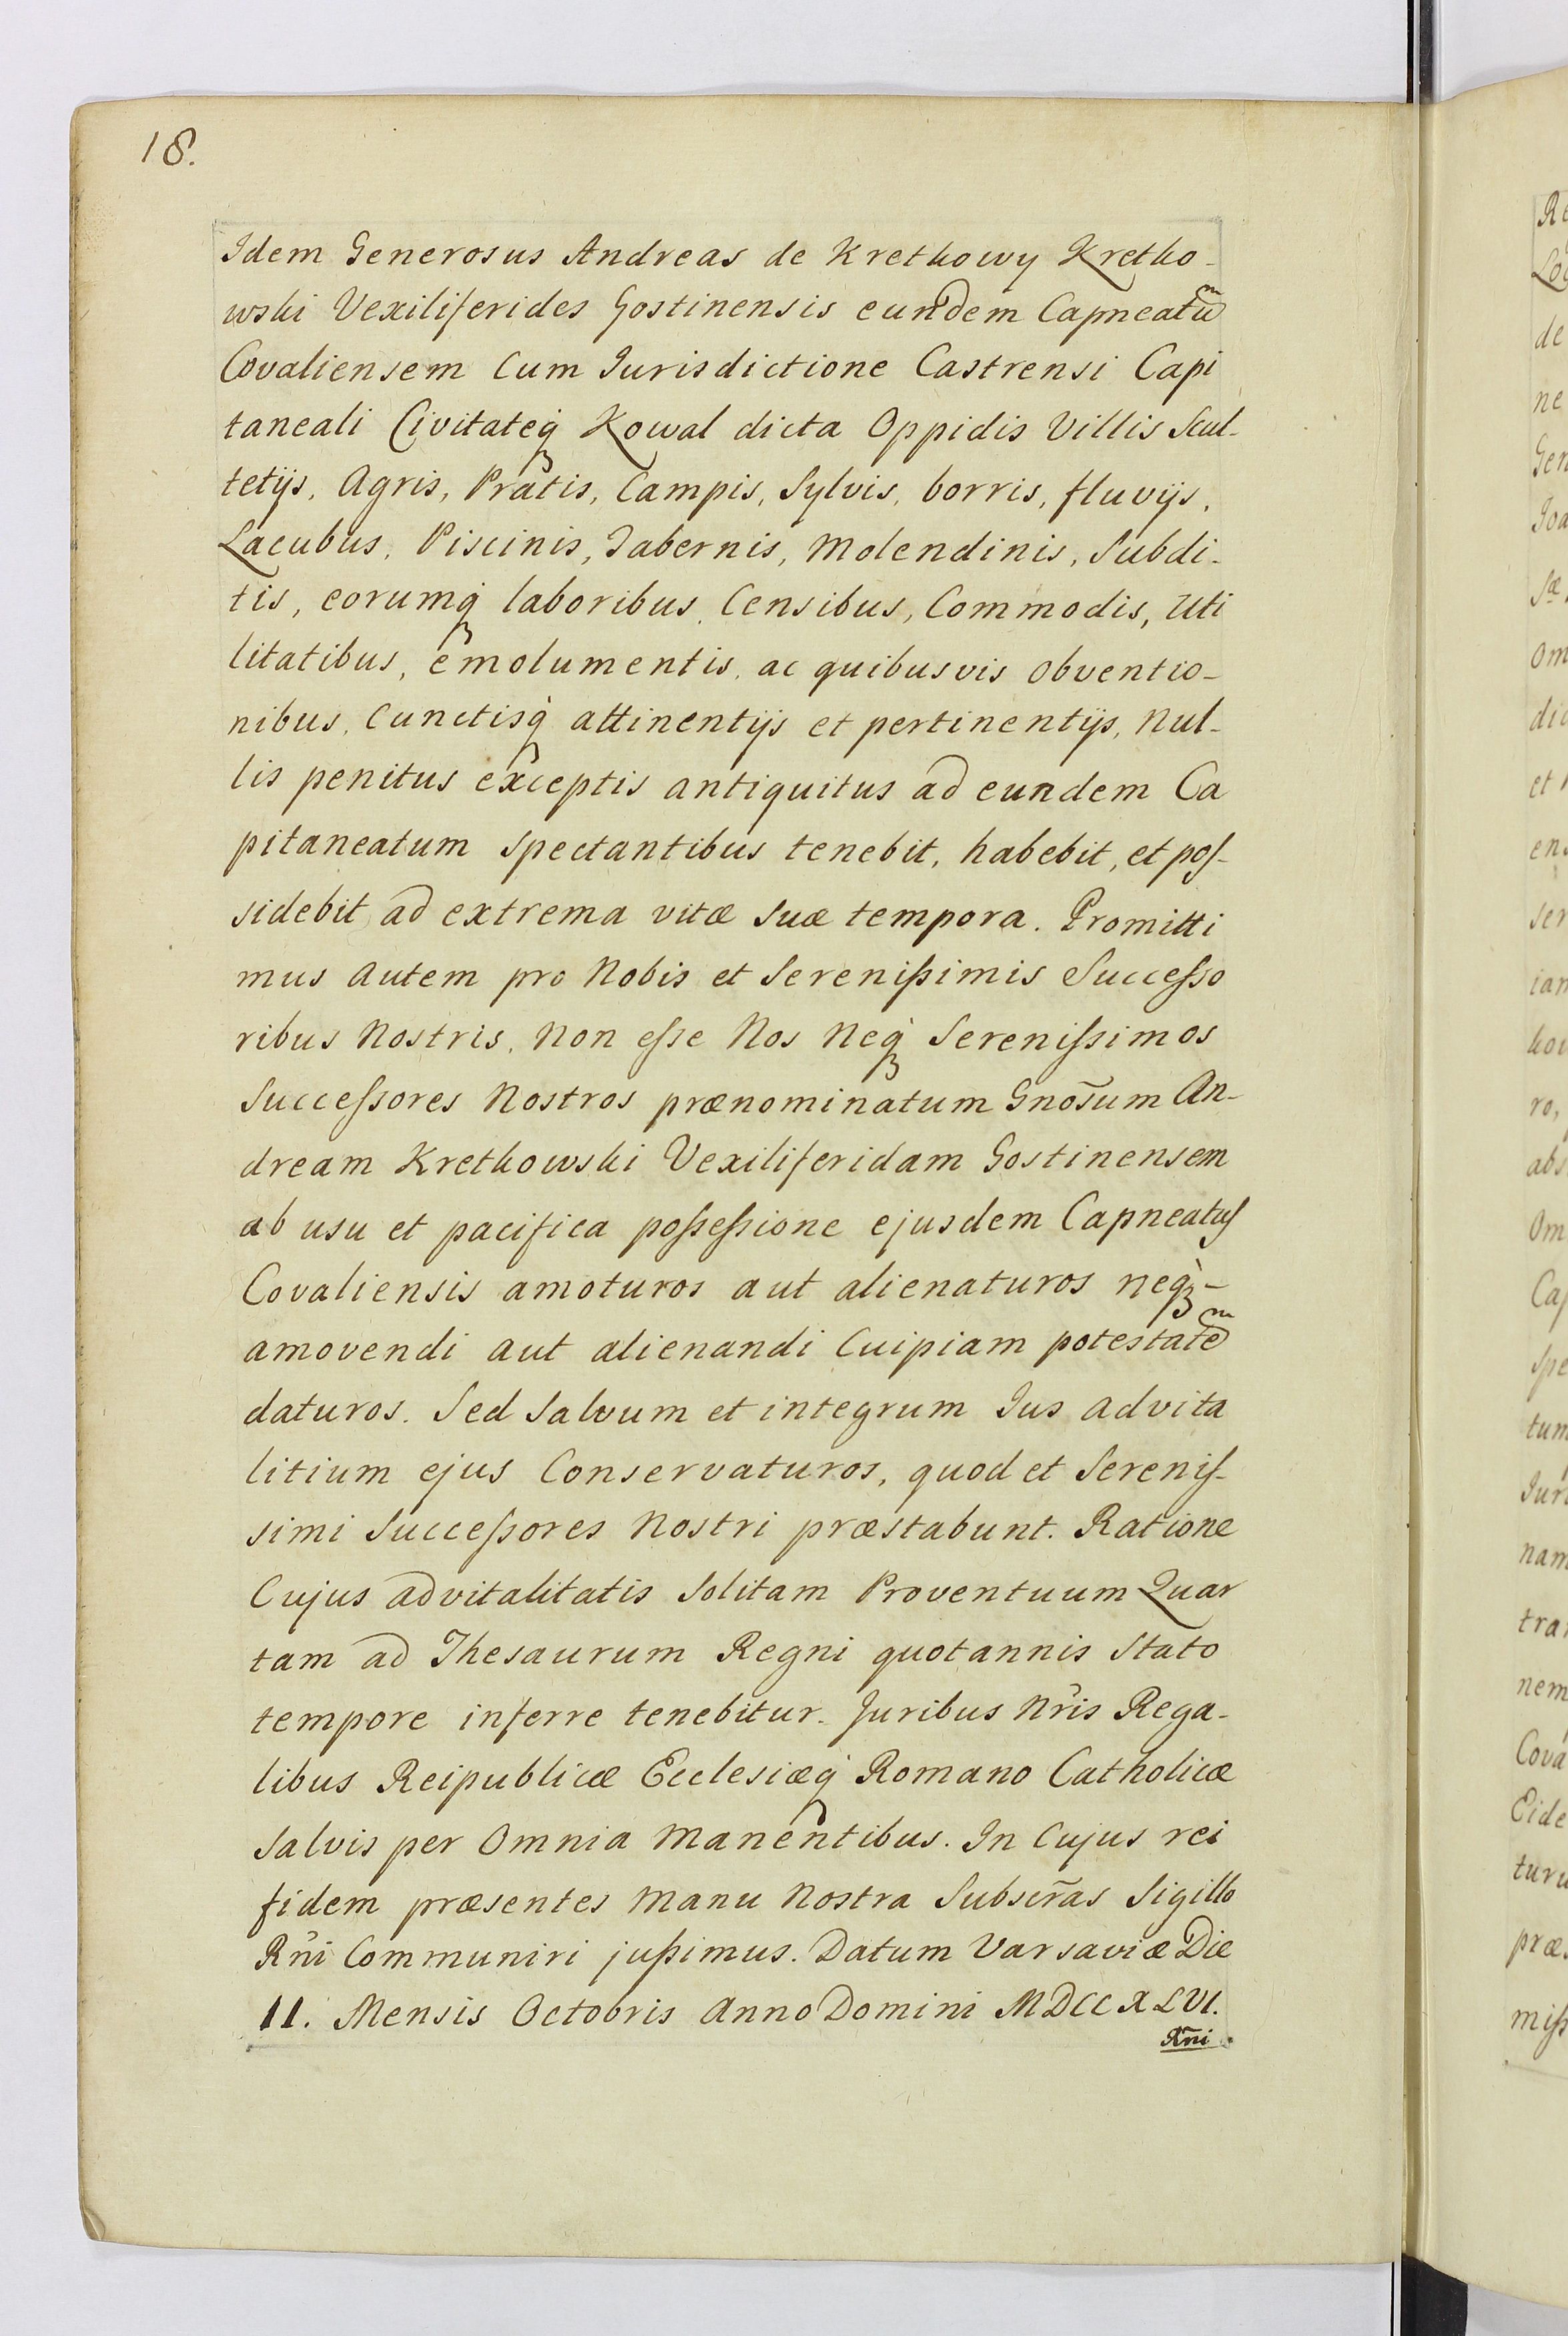 18.
Idem Generosus Andreas de Kretkowy Kretko-
wski Vexiliferides Gostinensis eundem Capneatũ
Covaliensem Cum Jurisdictione Castrensi Capi
taneali Civitateq̀ Kowal dicta Oppidis Villis Scul-
tetijs, Agris, Pratis, Campis, Sylvis, borris, fluvijs,
Lacubus, Piscinis, Tabernis, Molendinis, Subdi-
tis, eorumq̀ laboribus, Censibus, Commodis, Uti
litatibus, emolumentis, ac quibusvis obventio-
nibus, Cunctisq̀ attinentijs et pertinentijs, Nul-
lis penitus exceptis antiquitus ad eundem Ca
pitaneatum spectantibus tenebit, habebit, et pos-
sidebit ad extrema vitæ suæ tempora. Promitti
mus autem pro Nobis et Serenißimis Succeßo
ribus Nostris, Non eße Nos Neq̀ Serenißimos
Succeßores Nostros prænominatum Gnõsum An-
dream Kretkowski Vexiliferidam Gostinensem
ab usu et pacifica poßeßione ejusdem Capneatus
Covaliensis amoturos aut alienaturos neq̀-
amovendi aut alienandi Cuipiam potestatem
daturos. Sed Salvum et integrum Jus advita
litium ejus Conservaturos, quod et Serenis-
simi Succeßores Nostri præstabunt. Ratione
Cujus advitalitatis Solitam Proventuum Quar
tam ad Thesaurum Regni quotannis Stato
tempore inferre tenebitur. Juribus Nr̃is Rega-
libus Reipublicæ Ecclesiæq̀ Romano Catholicæ
Salvis per Omnia Manentibus. In Cujus rei
fidem præsentes Manu Nostra Subscr̃as Sigillo
Rñi Communiri jußimus. Datum Varsaviæ Die
II. Mensis Octobris Anno Domini MDCCXLVI.
Rñi